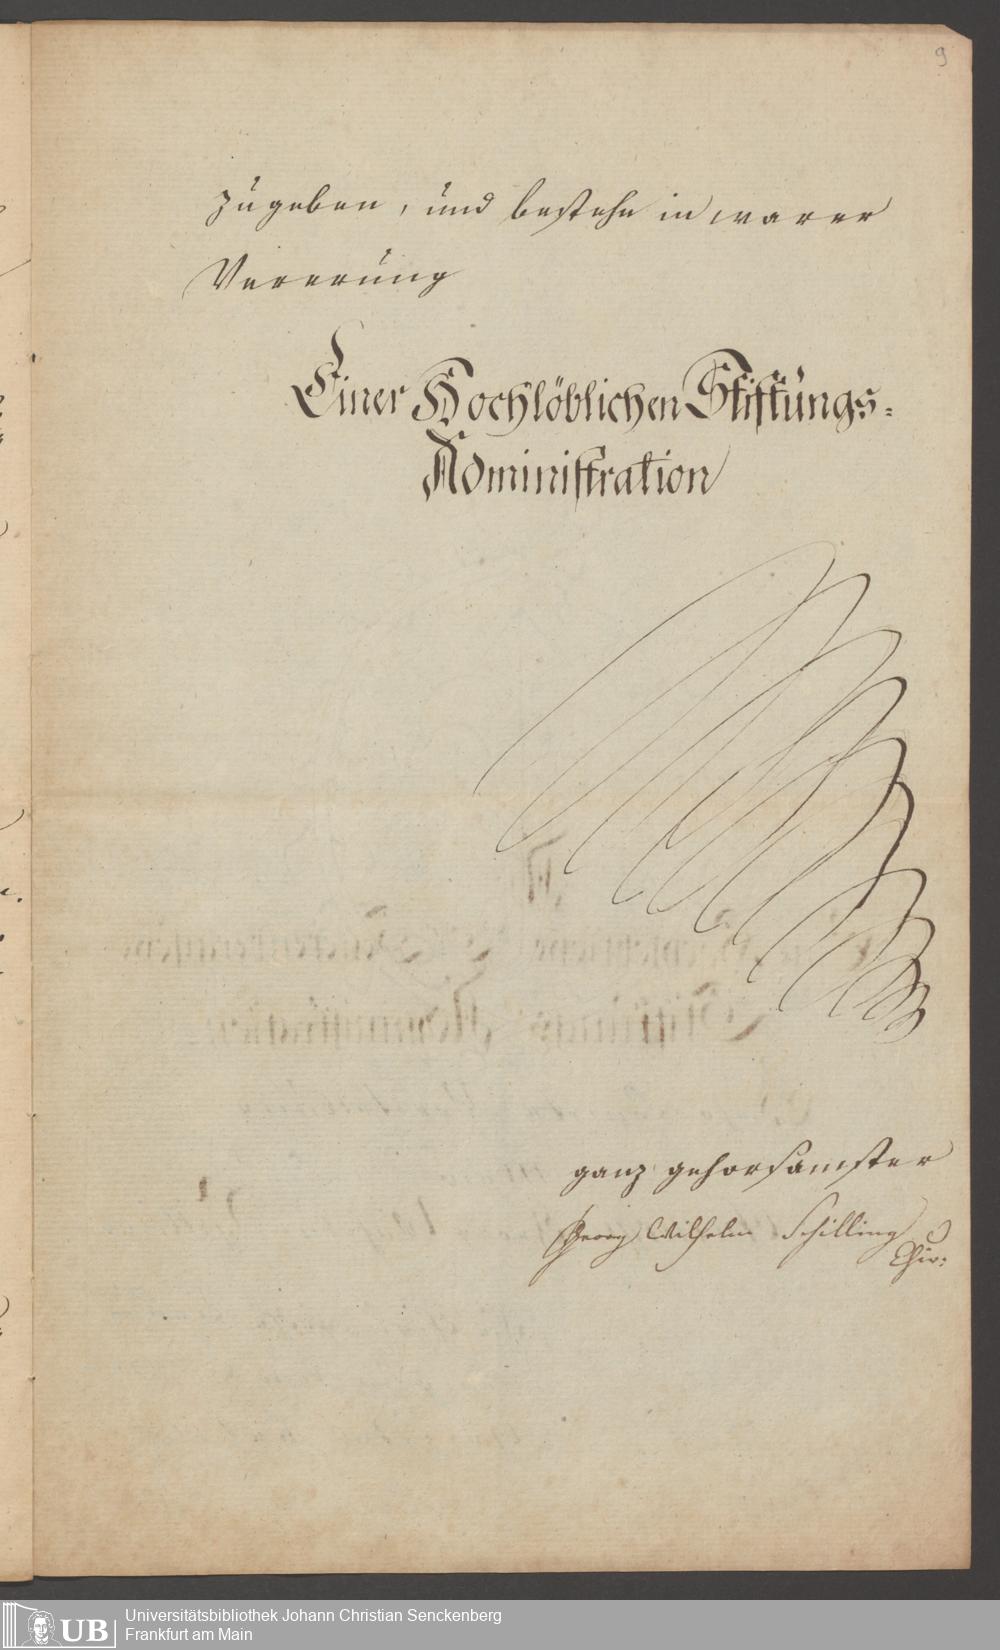 9
zugeben, und bestehe in warer
Vererung
Einer Hochlöblichen Stiftungs-
Administration
ganz gehorsamster
Georg Wilhelm Schilling
Chir:
UB
Universitätsbibliothek Johann Christian Senckenberg
Frankfurt am Main